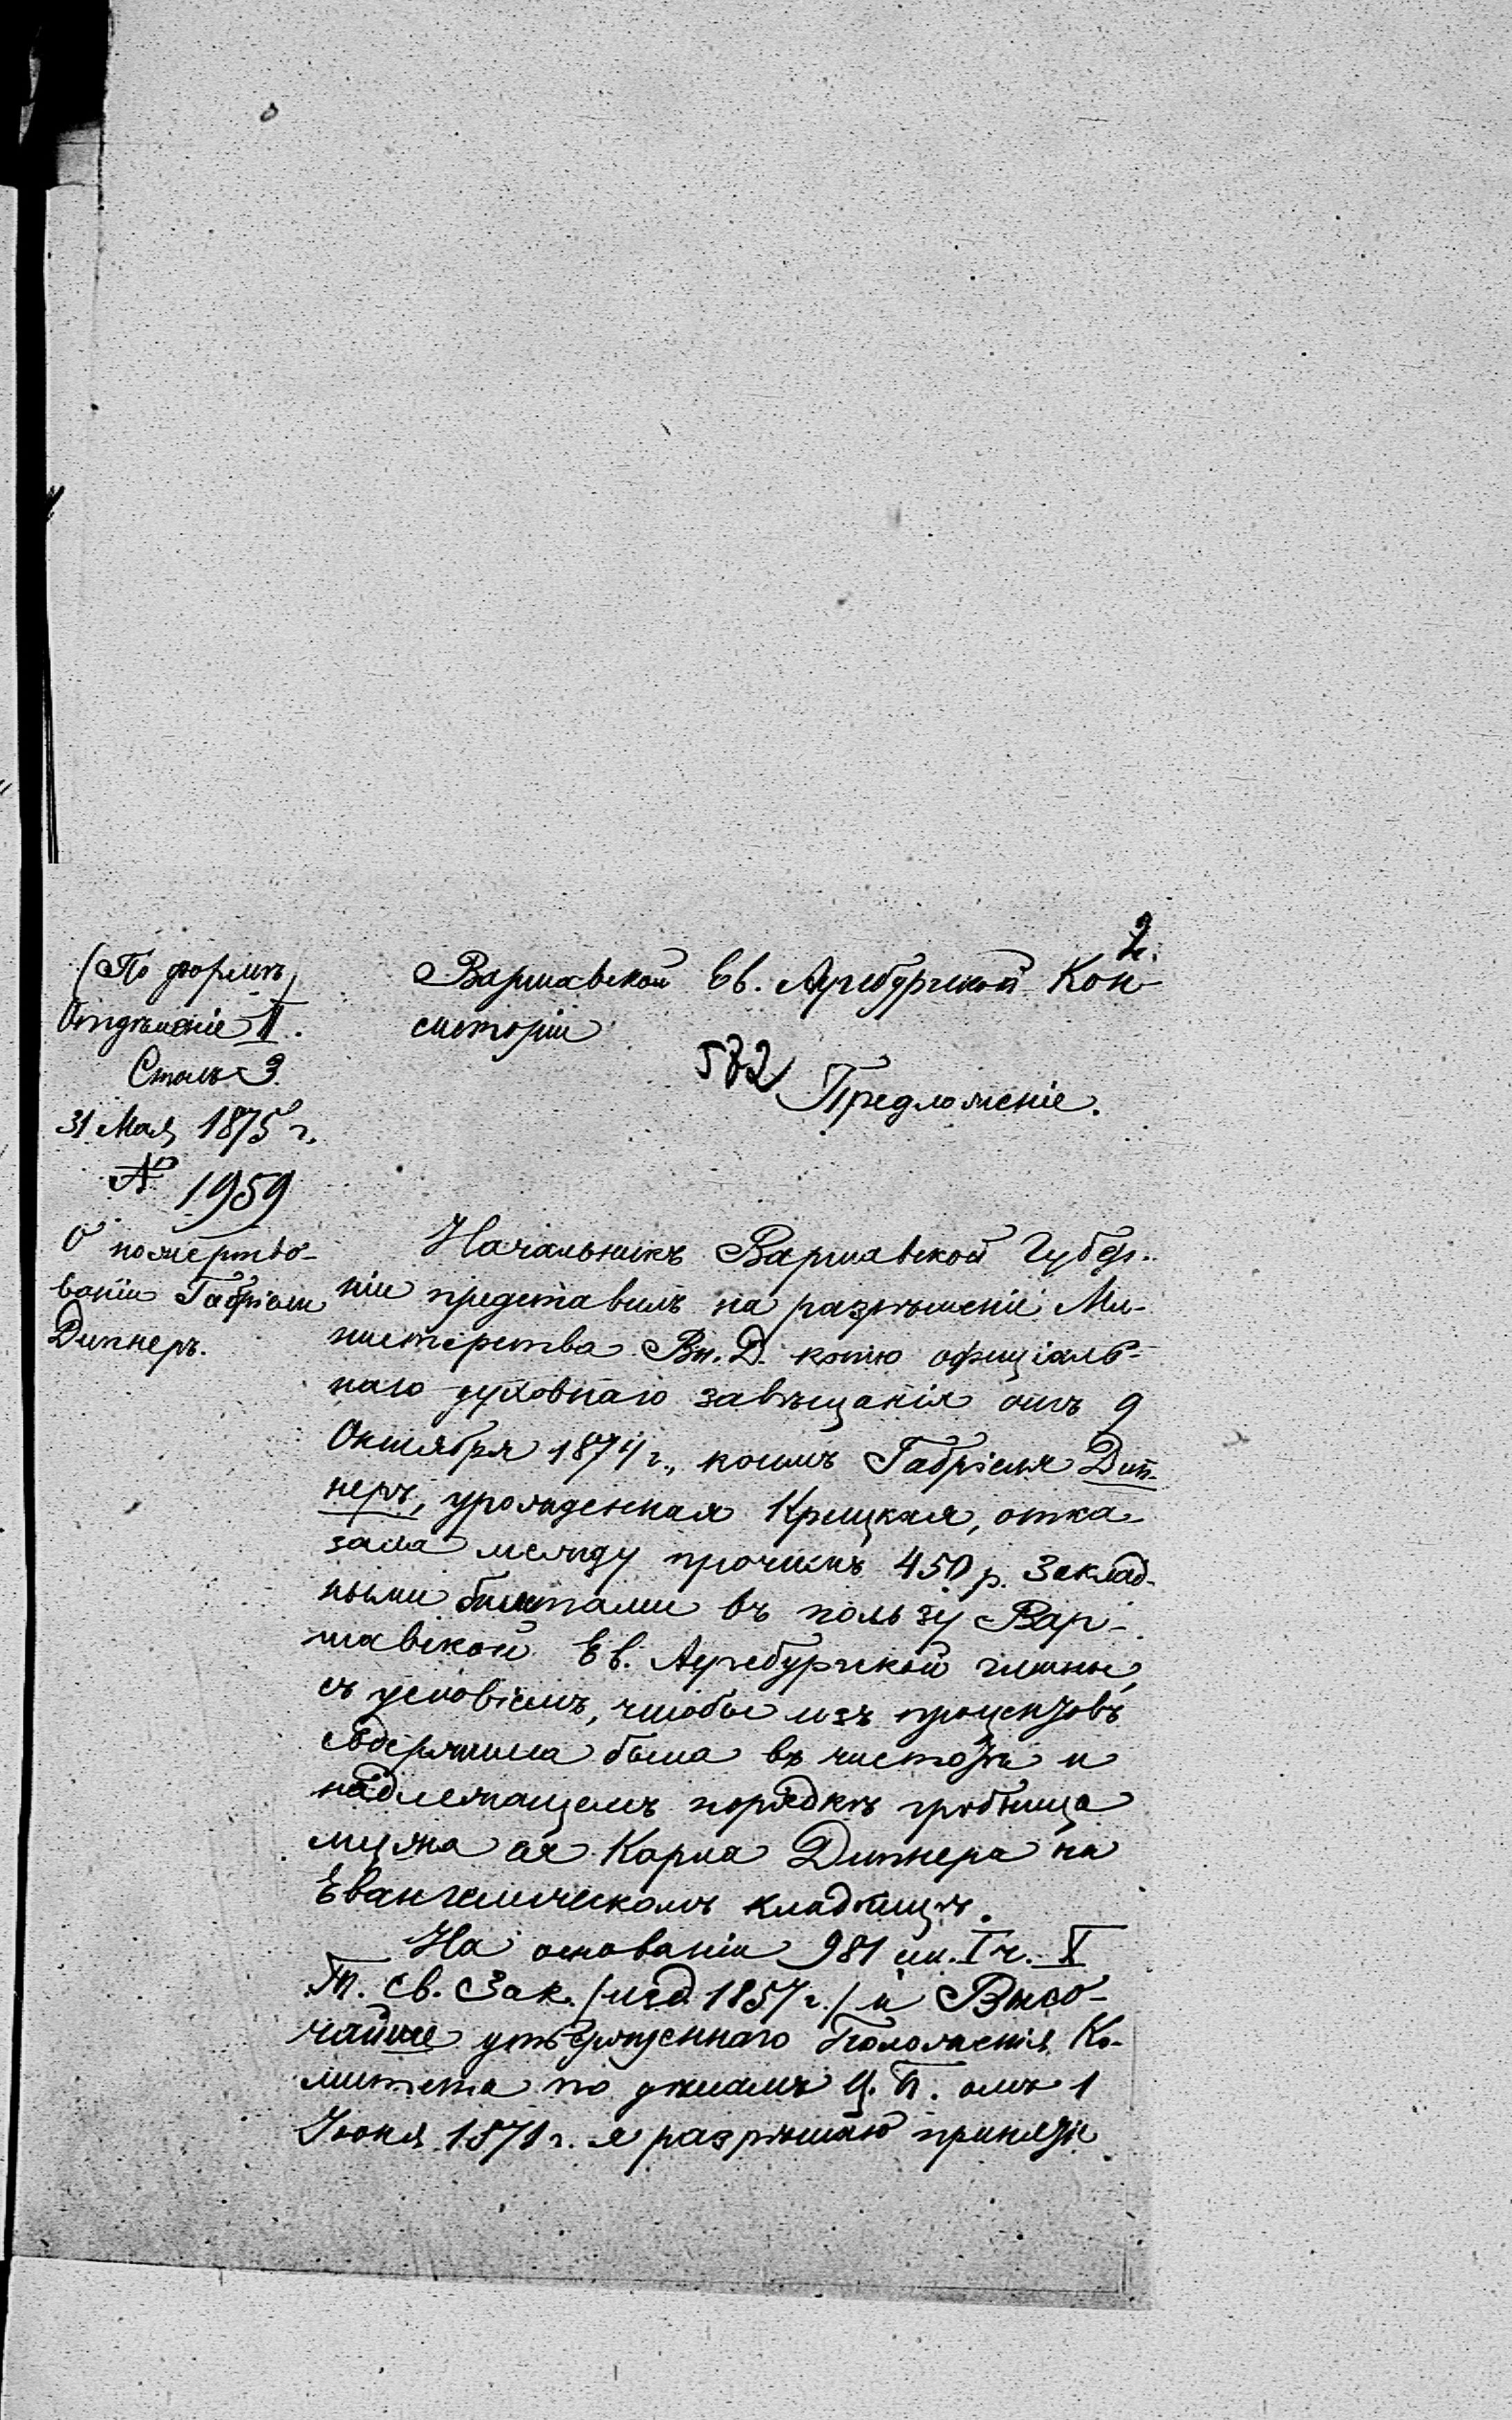 2.
(По формѣ)
Отдѣленіе II.
Столъ 3.
31 Мая 1875 г.
№ 1959
О пожертво-
ваніи Габріели
Дитнеръ.
Варшавской Ев. Аугсбургской Кон-
систоріи
582
Предложеніе.
Начальникъ Варшавской Губер-
ніи представилъ на разрѣшеніе Ми-
нистерства Вн. Д. копію офиціаль-
наго духовнаго завѣщанія отъ 9
Октября 1874 г., коимъ Габріеля Дит-
неръ, урожденная Крицкая, отка-
зала между прочимъ 450 р. Заклад-
ными билетами въ пользу Вар-
шавской Ев. Аугсбургской гмины,
съ условіемъ, чтобы изъ процентовъ
содержима была въ чистотѣ и
надлежащемъ порядкѣ гробница
мужа ея Карла Дитнера на
Евангелическомъ кладбищѣ.
На основаніи 981 ст. I ч. X
Т. Св. Зак. (изд. 1857 г.) и Высо-
чайше утвержденнаго Положенія Ко-
митета по дѣламъ Ц. П. отъ 1
Іюня 1871 г. я разрѣшаю принять